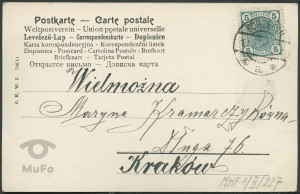 Postkarte — Carte postale
Weltpostverein — Union postale universelle
Levelező-Lap — Correspondenzkarte — Dopisnice
Karta korespondencyjna — Korespondenční lístek
Dopisnica — Postcard — Cartolina Postale — Brefkort
Briefkaart — Tarjeta Postal
Открытое письмо — Дописна карта
5
5
Wielmożna
Maryna Kramarczykówna
Długa 76.
Kraków
MuFo
MHF 1/II/227